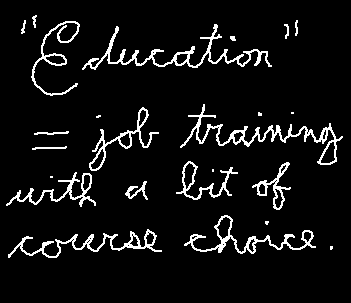 "Education"
= job training
with a bit of
course choice.